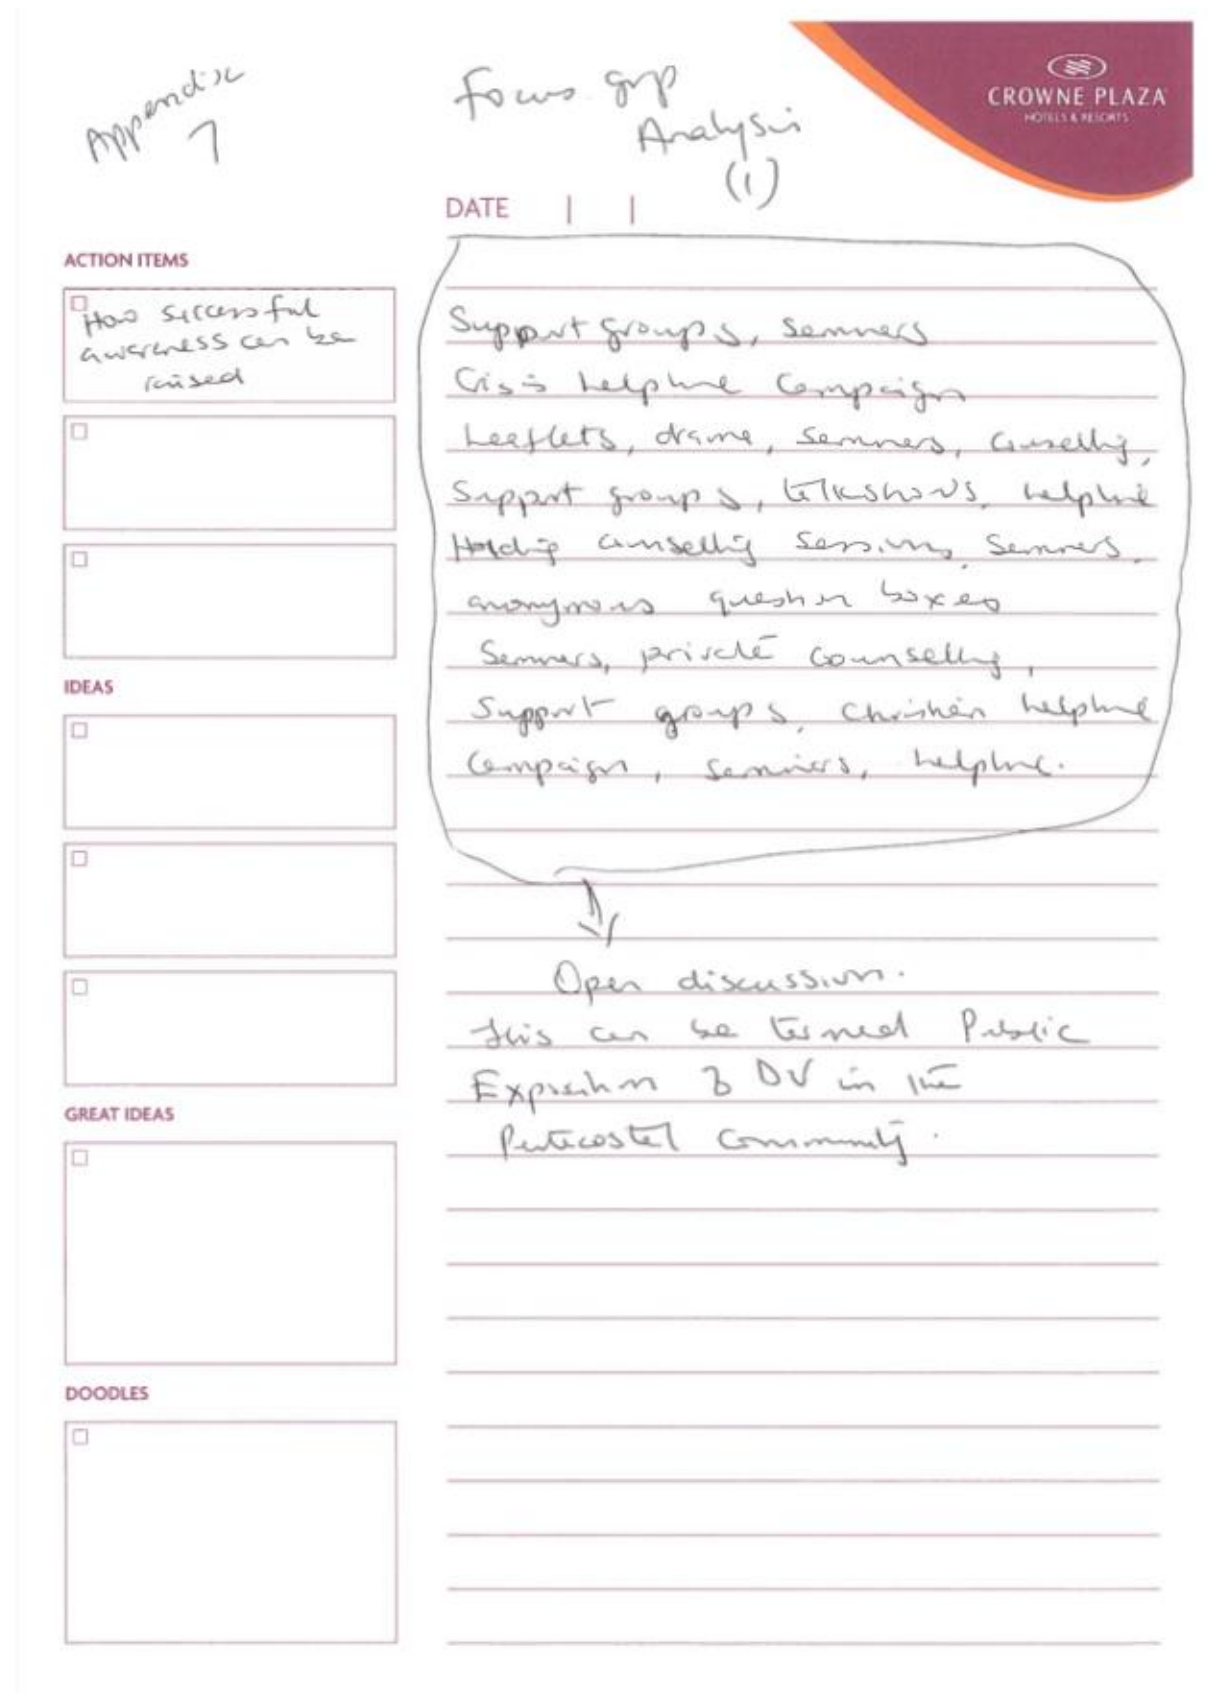 Appendix
7
Focus grp
Analysis
(1)
CROWNE PLAZA
HOTELS & RESORTS
DATE | |
ACTION ITEMS
How successful
awareness can be
raised
Support groups, Seminars
Crisis helpline Campaign
Leaflets, drama, Seminars, Counselling,
Support groups, talkshows, helpline
Holding counselling sessions, Seminars,
anonymous question boxes
Seminars, private counselling,
Support groups, Christian helpline
Campaign, seminars, helpline.
Open discussion.
This can be termed Public
of DV in the
Pentecostal Community.
IDEAS
GREAT IDEAS
DOODLES